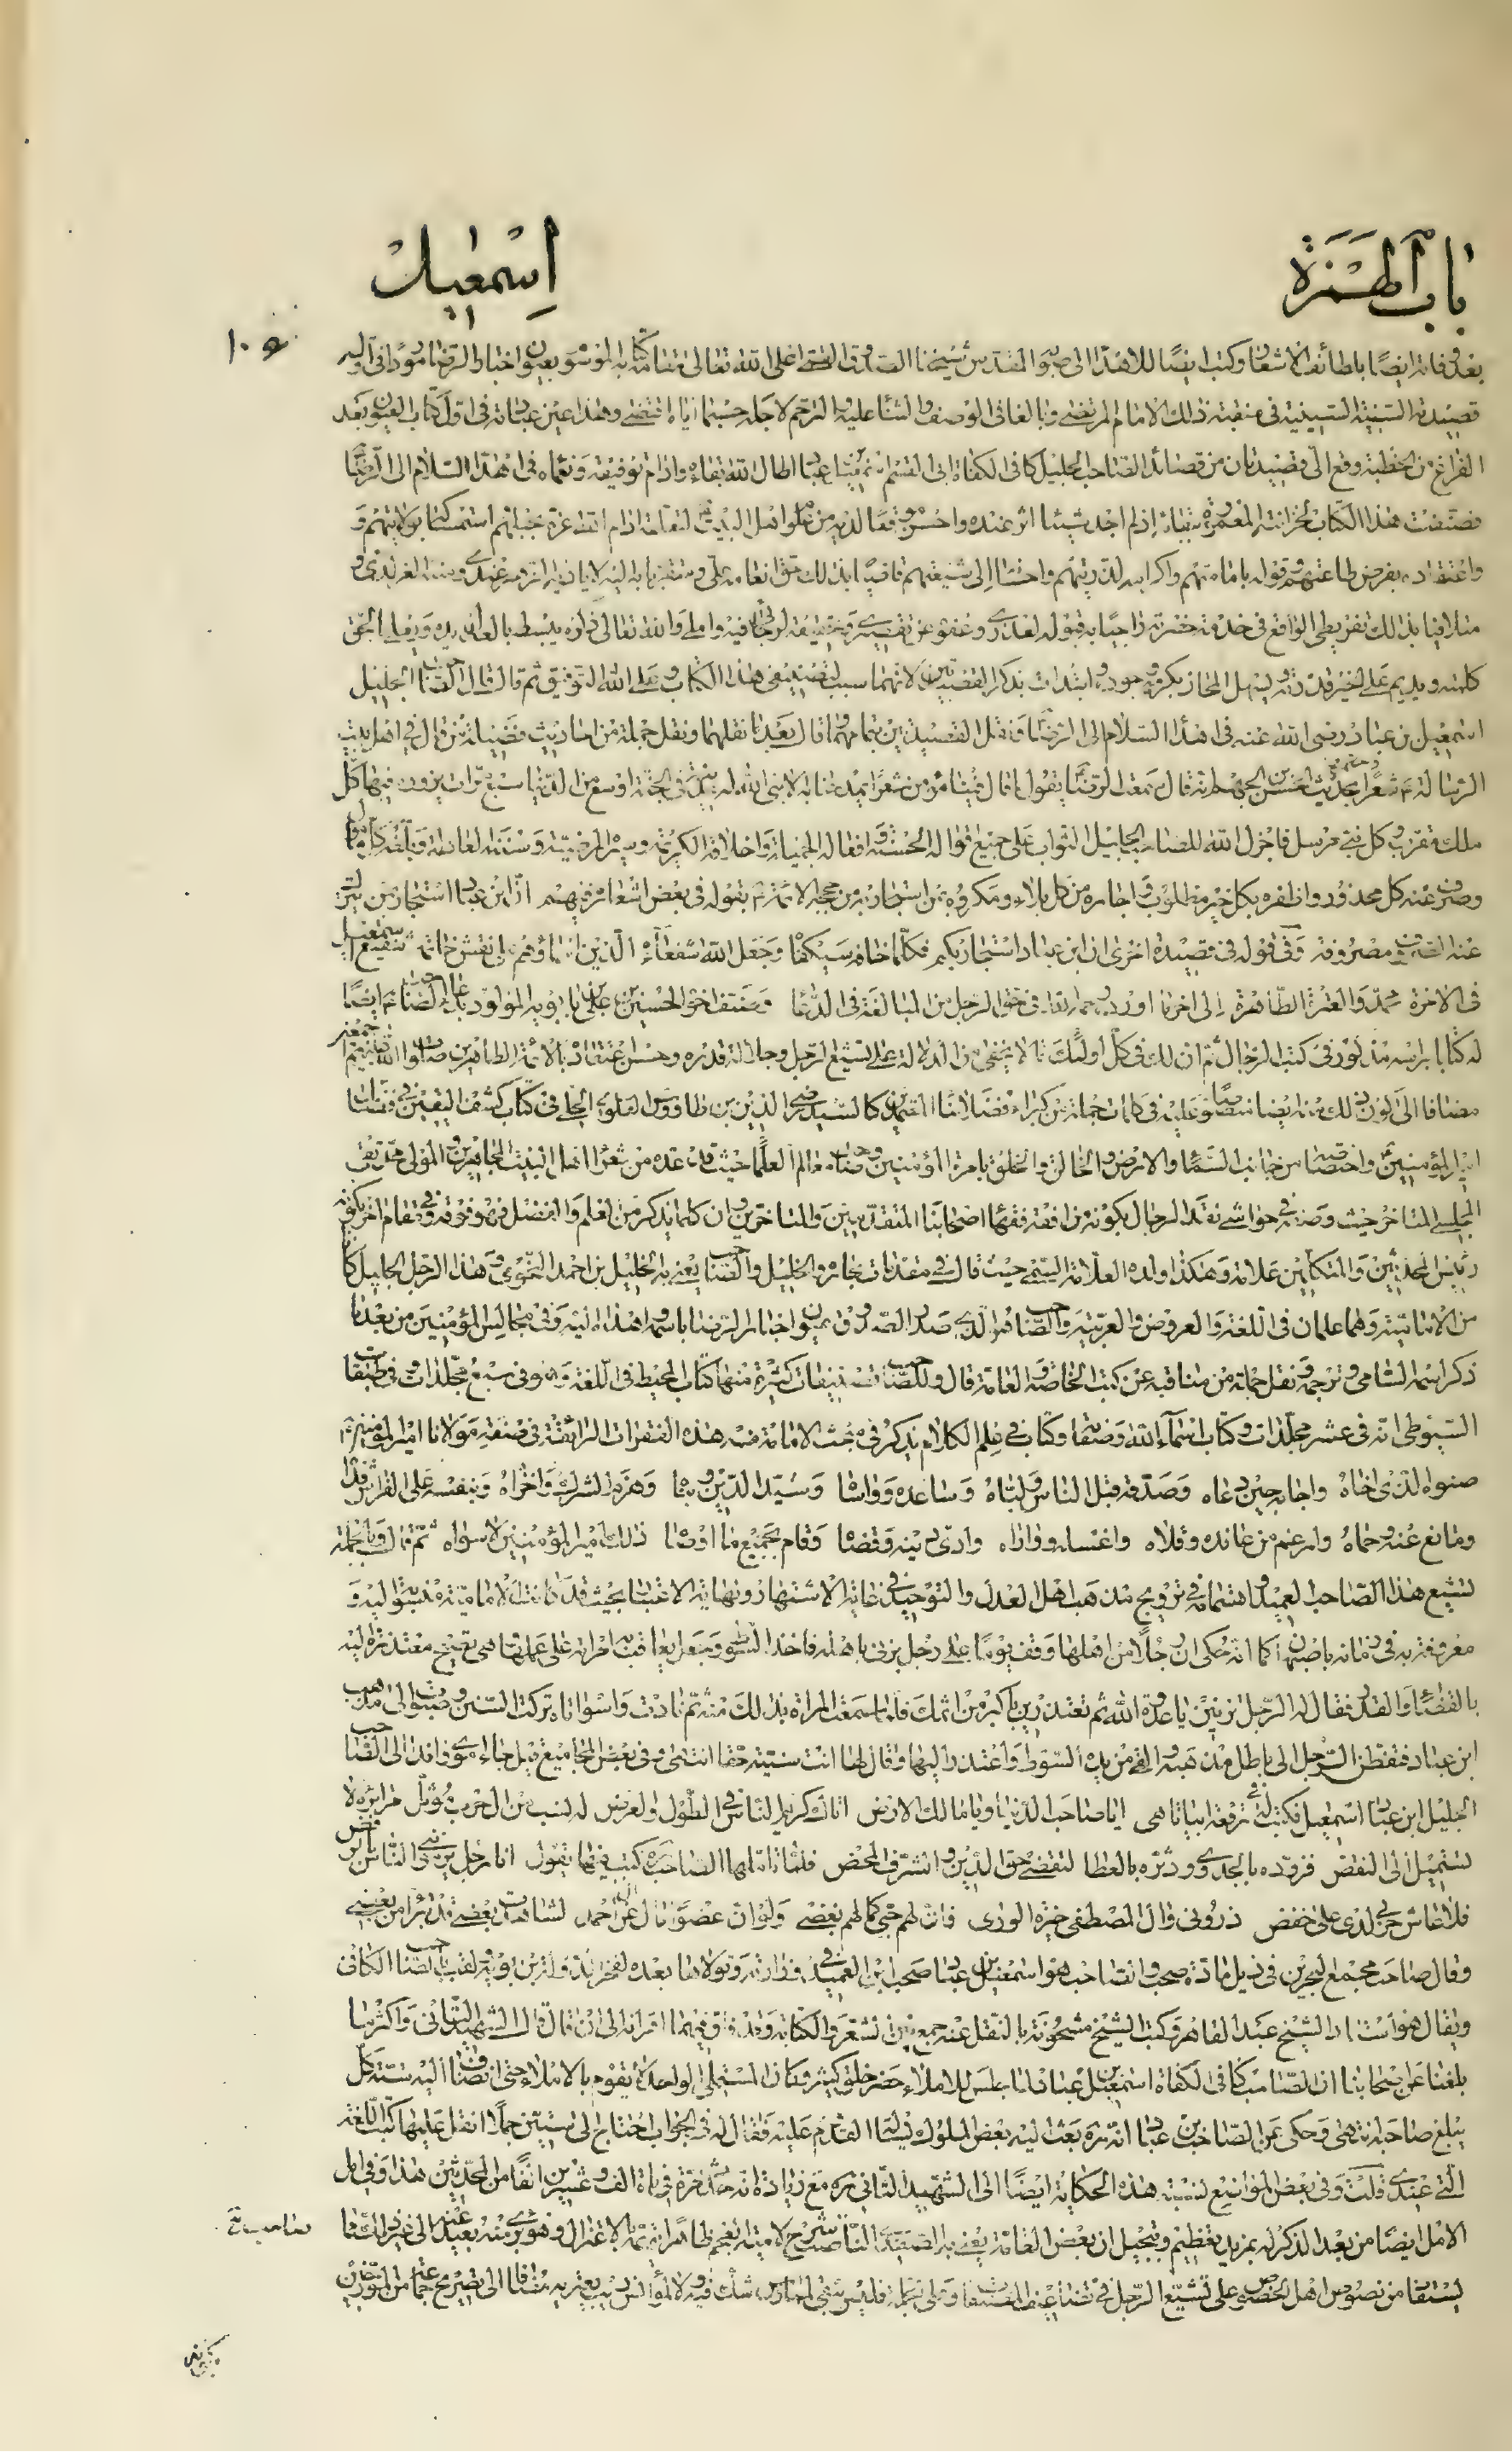 باب الهمزة
اسمعيل
١٠٥
بعد وفاته ايضا بلطائف الاشعار وكتب ايضا للاهداء الى المقدس شيخنا الصدوق اعلى الله تعالى مقامه كتابه الموسوم بعيون اخبار الرضا موردا فى اوله
قصيدته السنية السنية فى منقبة ذلك الامام المرتضى وبالغا فى الوصف والثناء عليه والترحم لاجله حسبما اياه اقتضى وهذا عين عبارته فى اول كتاب العيون بعد
الفراغ من الخطبة وقع الى قصيدتان من قصائد الصاحب الجليل كافى الكفاة ابى القسم اسمعيل بن عباد اطال الله بقاه وادام توفيقه ونعماه فى اهداء السلام الى الرضا
فصنفت هذا الكتاب لخزانته المعمورة ببقائه اذ لم اجد شيئا اثر عنده واحسن موقعا لديه من علوم اهل البيت لتعلقه ادام الله عزه بحبلهم واستمساكه بولايتهم و
واعتقاده بفرض طاعتهم وقوله بامامتهم واكرامه لذريتهم واحسانه الى شيعتهم قاضيا بذلك حق انعامه على ومتقربا به اليه لاياديه الزهر عندى ومننه الغر لدى و
متلافيا بذلك تفريطى الواقع فى خدمة حضرته راجيا به قبوله لعذرى وعفوه عن تقصيرى وتحقيقه لرجائى فيه واملى والله تعالى ذكره يبسط بالعدل يده ويعلى بالحق
كلمته ويديم على الخير قدرته ويسهل المحاز بكرمه وجوده وابتدات بذكر القصيدتين لانهما سبب لتصنيفى هذا الكتاب وعلى الله التوفيق ثم قال قال الصاحب الجليل
اسمعيل بن عباد رضى الله عنه فى اهداء السلام الى الرضا ونقل القصيدتين بتمامهما وقال بعد ما نقلهما ونقل جملة من احاديث فضيلة من قال فى اهل بيت
الرسالة شعرا بحديث الحسن بن الجهم انه قال سمعت الرضا يقول ما قال فينا مؤمن شعرا يمدحنا به الا بنى الله له بيتا فى الجنة اوسع من الدنيا سبع مرات يزوره فيها كل
ملك مقرب وكل نبى مرسل فاجزل الله للصاحب الجليل الثواب على جميع اقواله الحسنة وافعاله الجميلة واخلاقه الكريمة وسيرته المرضية وسنته العادلة وبلغه كل مامول
وصرف عنه كل محذور واظفره بكل خير مطلوب واجاره من كل بلاء ومكروه بمن استجار به من حججه الائمة بقوله فى بعض اشعاره فيهم ان ابن عباد استجار بمن يترك
عنه الصروف مصروفة وفى قوله فى قصيدة اخرى ان ابن عباد استجار بكم فكلما خافه سيكفاه وجعل الله شفعاءه الذين اسماؤهم فى نقش خاتمه شفيع اسمعيل
فى الاخرة محمد والعترة الطاهرة الى اخر ما اورده رحمه الله فى حق الرجل من المبالغة فى الدعاء وصنف اخوه الحسين بن على بن بابويه المولود بدعاء الصاحب ايضا
له كتابا براسه مذكور فى كتب الرجال ثم ان لك فى كل اولئك ما لا يخفى من الدلالة على تشيع الرجل وجلالة قدره وحسن اعتقاده بالائمة الطاهرين صلوات الله عليهم
مضافا الى كون ذلك منه ايضا منصوصا عليه فى كلمات جملة من كبراء فضلائنا المعتمدين كالسيد رضى الدين بن طاووس العلوى الحلى فى كتاب كشف اليقين فى
امير المؤمنين واختصاصه من جانب السماء والارض والخالق والخلق بامرة المؤمنين وصاحب معالم العلماء حيث قد عده من شعراء اهل البيت المجاهرين والمولى محمد تقى
المجلسى المتاخر حيث وصفه فى حواشى نقد الرجال بكونه من افقه فقهاء اصحابنا المتقدمين والمتاخرين وان كلما يذكر من العلم والفضل فهو فوقه وفى مقام اخر بكونه
رئيس المحدثين والمتكلمين علامة وهكذا ولده العلامة السمى حيث قال فى مقدمات بحاره والخليل والصاحب يعنى به الخليل بن احمد النحوى وهذا الرجل الجليل كانا
من الامامية وهما علمان فى اللغة والعروض والعربية والصاحب هو الذى صدر الصدوق عيون اخبار الرضا باسمه واهداه اليه وفى مجالس المؤمنين من بعد ما
ذكر اسمه السامى وترجمه ونقل جملة من مناقبه عن كتب الخاصة والعامة قال وللصاحب تصنيفات كثيرة منها كتاب المحيط فى اللغة وهو فى سبع مجلدات وفى طبقات
السيوطى انه فى عشر مجلدات وكتاب اسماء الله وصفاته وكتاب فى علم الكلام يذكر فى مبحث الامامة منه هذه الفقرات الرائقة فى صفة مولانا امير المؤمنين
صنوه الذى اخاه واجابه حين دعاه وصدقه قبل الناس ولباه وساعده وواساه وشيد الدين وبناه وهزم الشرك واخزاه وبنفسه على الفراش فداه
ومانع عنه وحماه وارغم من عانده وقلاه واغسله وواراه وادى دينه وقضاه وقام بجميع ما اوصاه ذلك امير المؤمنين لا سواه ثم قال وبالجملة
تشيع هذا الصاحب العميد واهتمامه فى ترويج مذهب اهل العدل والتوحيد فى غاية الاشتهار ونهاية الاعتبار بحيث قد كانت الامامية منسوبة اليه و
معروفة به فى زمانه باصبهان كما انه حكى ان رجلا من اهلها وقف يوما على رجل يزنى باهله فاخذ السوط وجعل يعاقب امراته على عملها وهى تصيح معتذرة اليه
بالقضاء والقدر فقال لها الرجل تزنين يا عدوة الله ثم تعتذرين باكبر من اثمك فلما سمعت المراة بذلك منه ثم نادت واسوأتاه تركت السنن وصبوت الى مذهب
ابن عباد فتفطن الرجل الى باطل مذهبه والقى من يده السوط واعتذر اليها وقال لها انت سنية حقا انتهى وفى بعض المجاميع قيل جاء اموى وافدا الى الصاحب
الجليل ابن عباد اسمعيل فكتب اليه فى رقعة ابياتا هى ايا صاحب الدنيا ويا مالك الارض اتاك كريم الناس فى الطول والعرض له نسب من ال حرب مؤثل مرائره لا
تستميل الى النقض فزوده بالجدوى ودثره بالعطا لتقضى حق الدين والشرف المحض فلما تاملها الصاحب كتب فيها يقول انا رجل يرمينى الناس بالرفض
فلا عاش حربى لدى على خفض ذرونى وال المصطفى خيرة الورى فان لهم حبى كما لهم بغضى ولو ان عضوا مال عن ال احمد لشاهدت بعضى قد تبرا من بعضى
وقال صاحب مجمع البحرين فى ذيل مادة صحب والصاحب هو اسمعيل بن عباد صحب ابن العميد فى وزارته وتولاها بعده لفخر الدولة بن بويه ولقب بالصاحب الكافى
ويقال هو استاد الشيخ عبد القاهر وكتب الشيخ مشحونة بالنقل عنه جمع بين الشعر والكتابة وقد فاق فيهما اقرانه الى ان قال قال الشهيد الثانى واكثر ما
بلغنا عن اصحابنا ان الصاحب كافى الكفاة اسمعيل بن عباد لما جلس للاملاء حضر خلق كثير وكان المستملى الواحد لا يقوم بالاملاء حتى انضاف اليه ستة كل
يبلغ صاحبه انتهى وحكى عن الصاحب بن عباد انه مرة بعث اليه بعض الملوك يسئله القدوم عليه فقال له فى الجواب احتاج الى ستين جملا انقل عليها كتب اللغة
التى عندى قلت وفى بعض المواضع نسبة هذه الحكاية ايضا الى الشهيد الثانى ره مع زيادة انه حضره فى مائة الف وعشرين الفا من المحدثين هذا وفى امل
الامل ايضا من بعد الذكر له بمزيد تعظيم وتبجيل ان بعض العامة يعنى به الصفدى الناصب فى شرح لامية العجم ظاهرا اتهمه بالاعتزال وهو برئ منه بعيد عنه الى غير ذلك مما
يستفاد من نصوص اهل الخصوص على تشيع الرجل